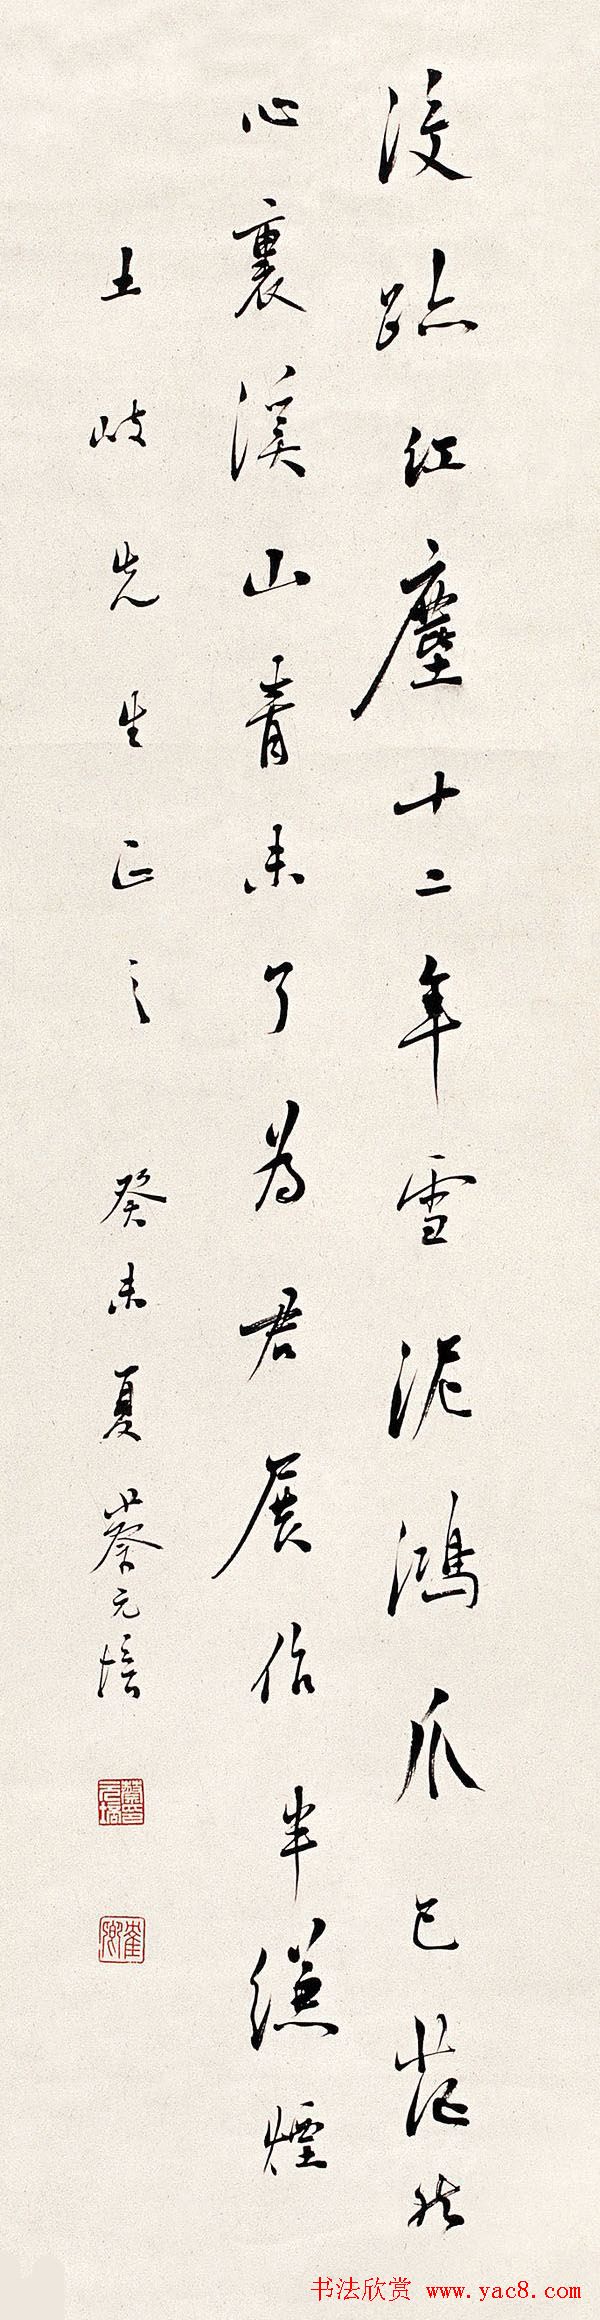 沒跡紅塵十二年雪泥鴻爪已茫然
心裏溪山青未了為君展作半縑煙
土岐先生正之 癸未夏 蔡元培
书法欣赏 www.yac8.com